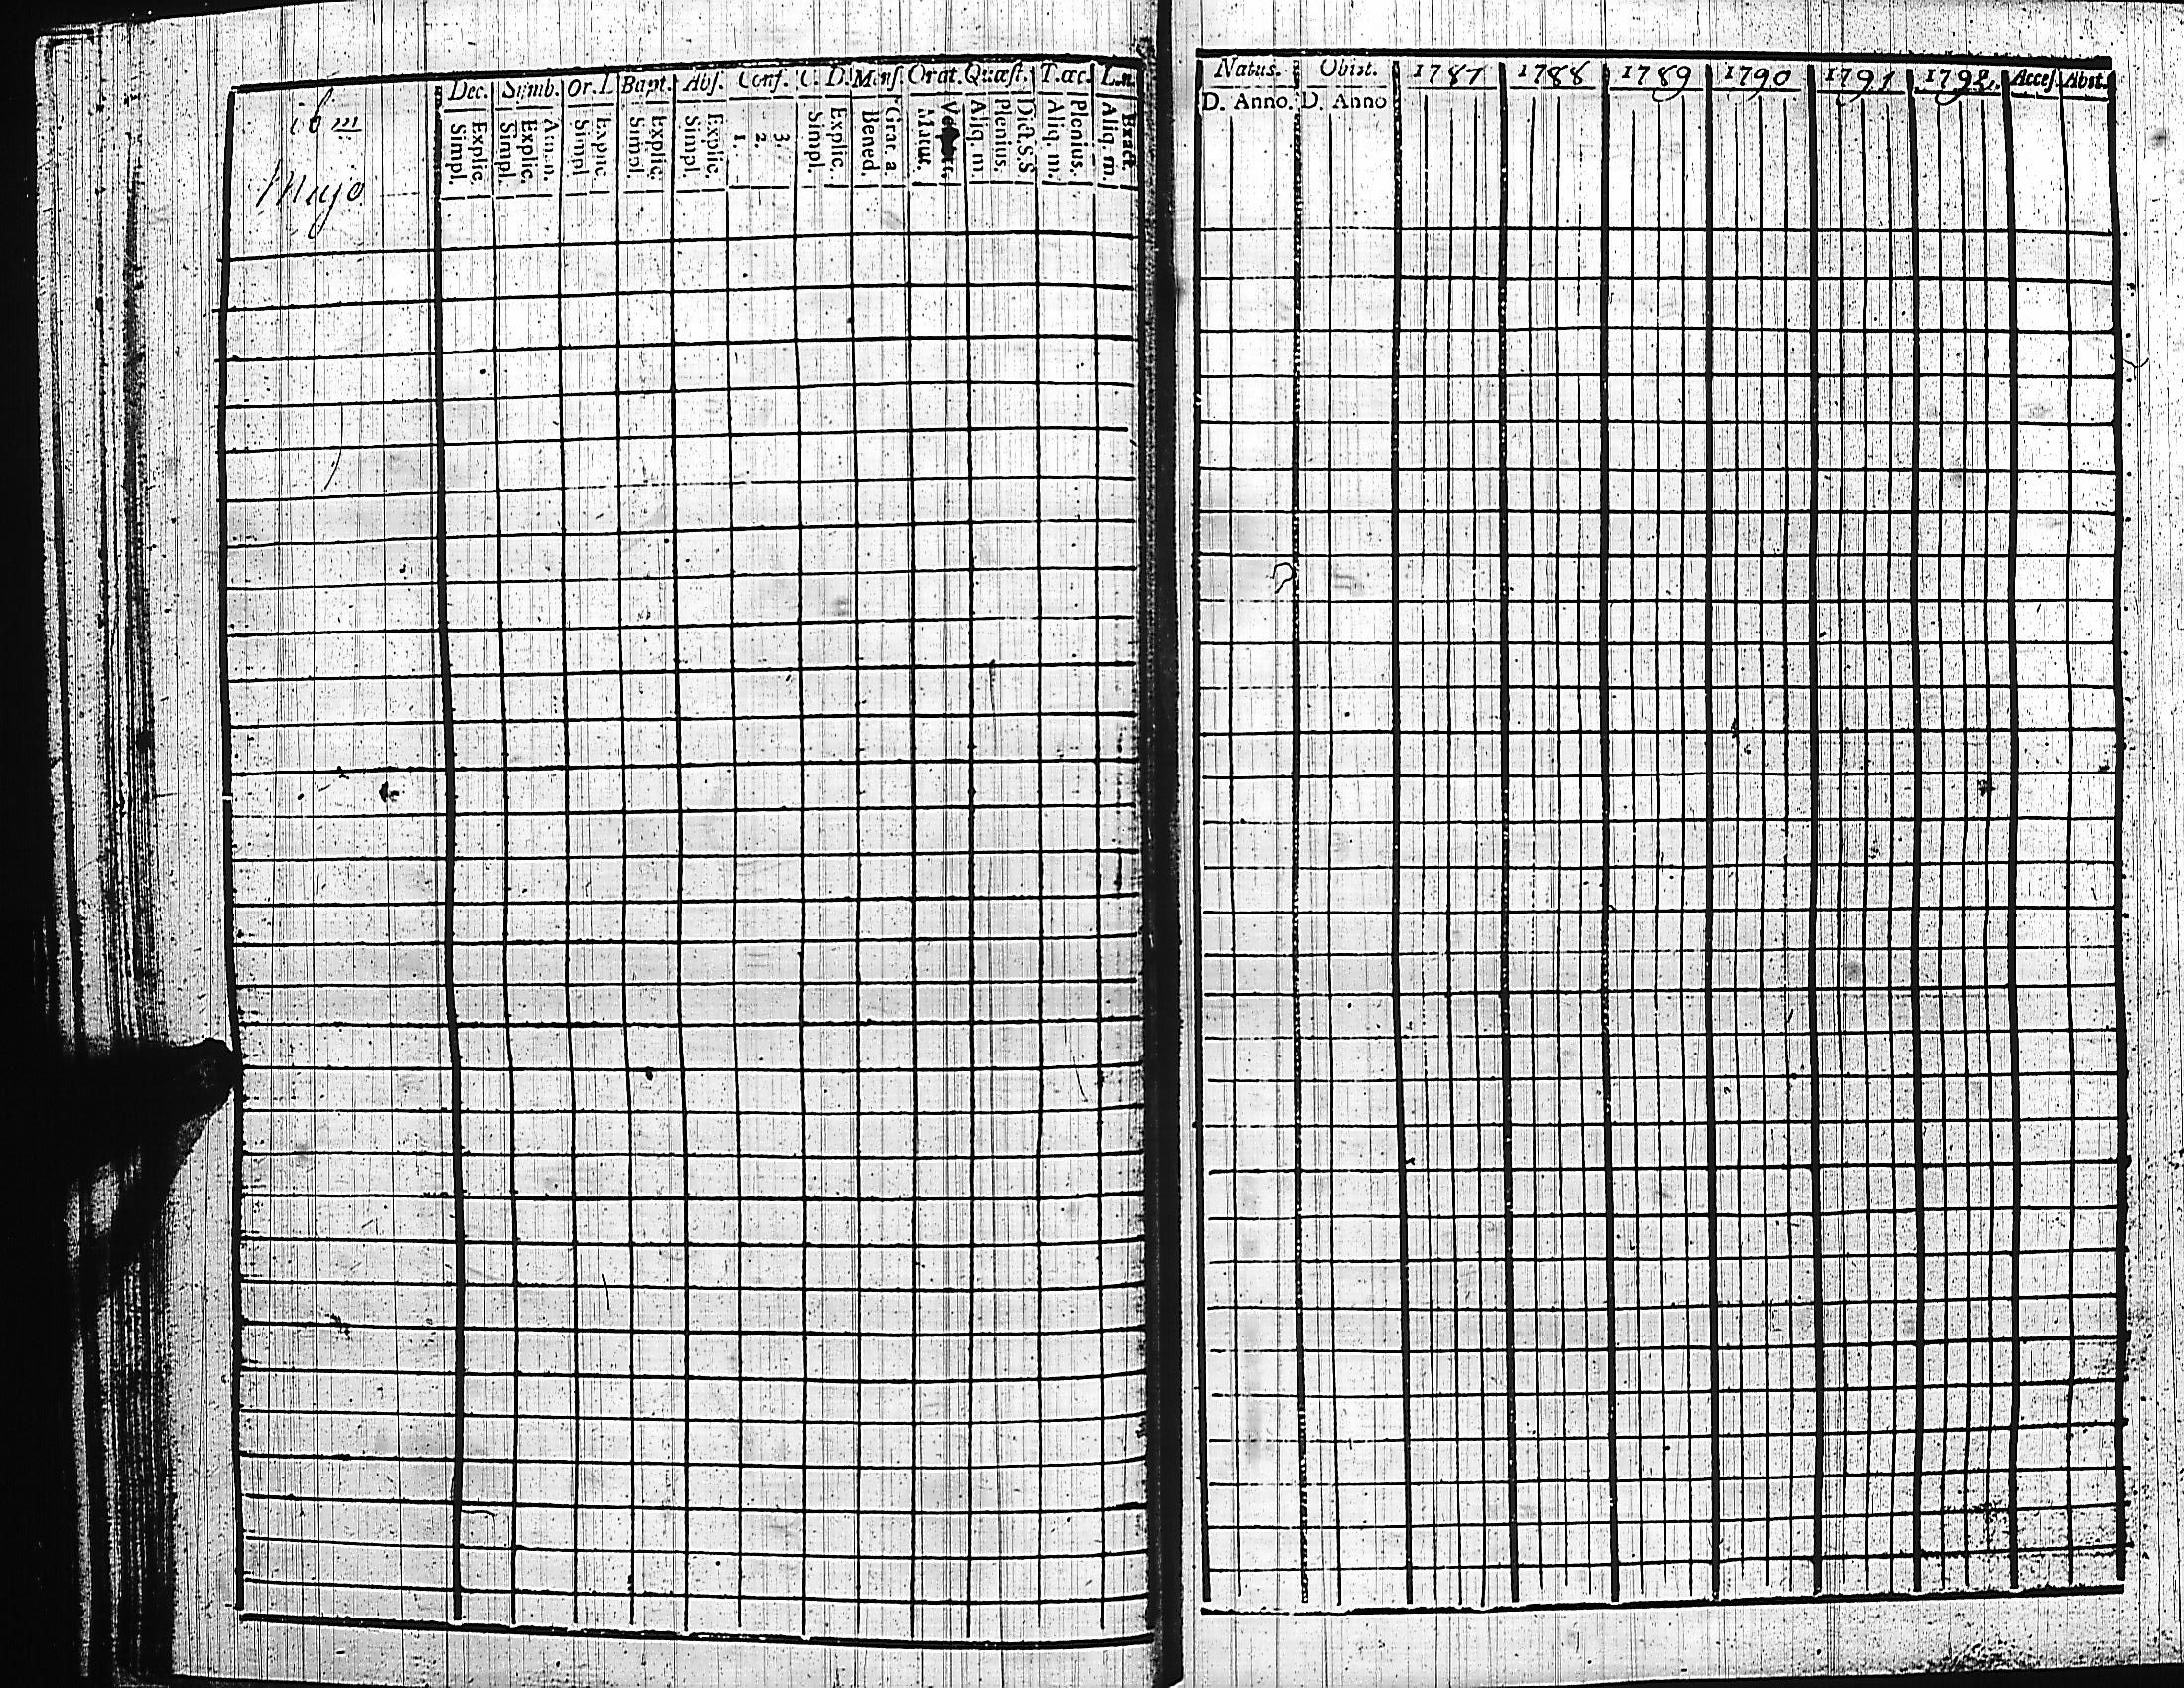 Dec. Simb. Or. D. Bapt. Abs. Conf. C. D. Menſ. Orat. Quæſt. T. œc. L. n.
Simpl. Explic. Simpl. Explic. Simpl. Explic. Simpl. Explic. Simpl. Explic. 1. 2. 3. Simpl. Explic. Bened. Grat. a. Matut. Aliq. m. Plenius. Dict. S.S Aliq. m. Plenius. Aliq. m. Exact.
Natus. Obiit. 1787 1788 1789 1790 1791 1792. Acceſ. Abit.
D. Anno. D. Anno